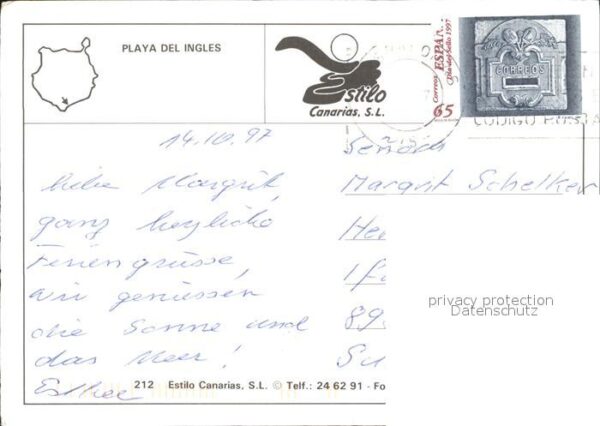 PLAYA DEL INGLES
Estilo
Canarias, S.L.
Correos ESPAÑA
Día del Sello 1997
65
CORREOS
CODIGO POSTA
14.10.97
Liebe Margrit,
ganz herzliche
Feriengrüsse,
wir geniessen
die Sonne und
das Meer!
Esther
Señora
Margrit Schelker
He
1
89
Su
privacy protection
Datenschutz
212 Estilo Canarias, S.L. © Telf.: 24 62 91 - Fo